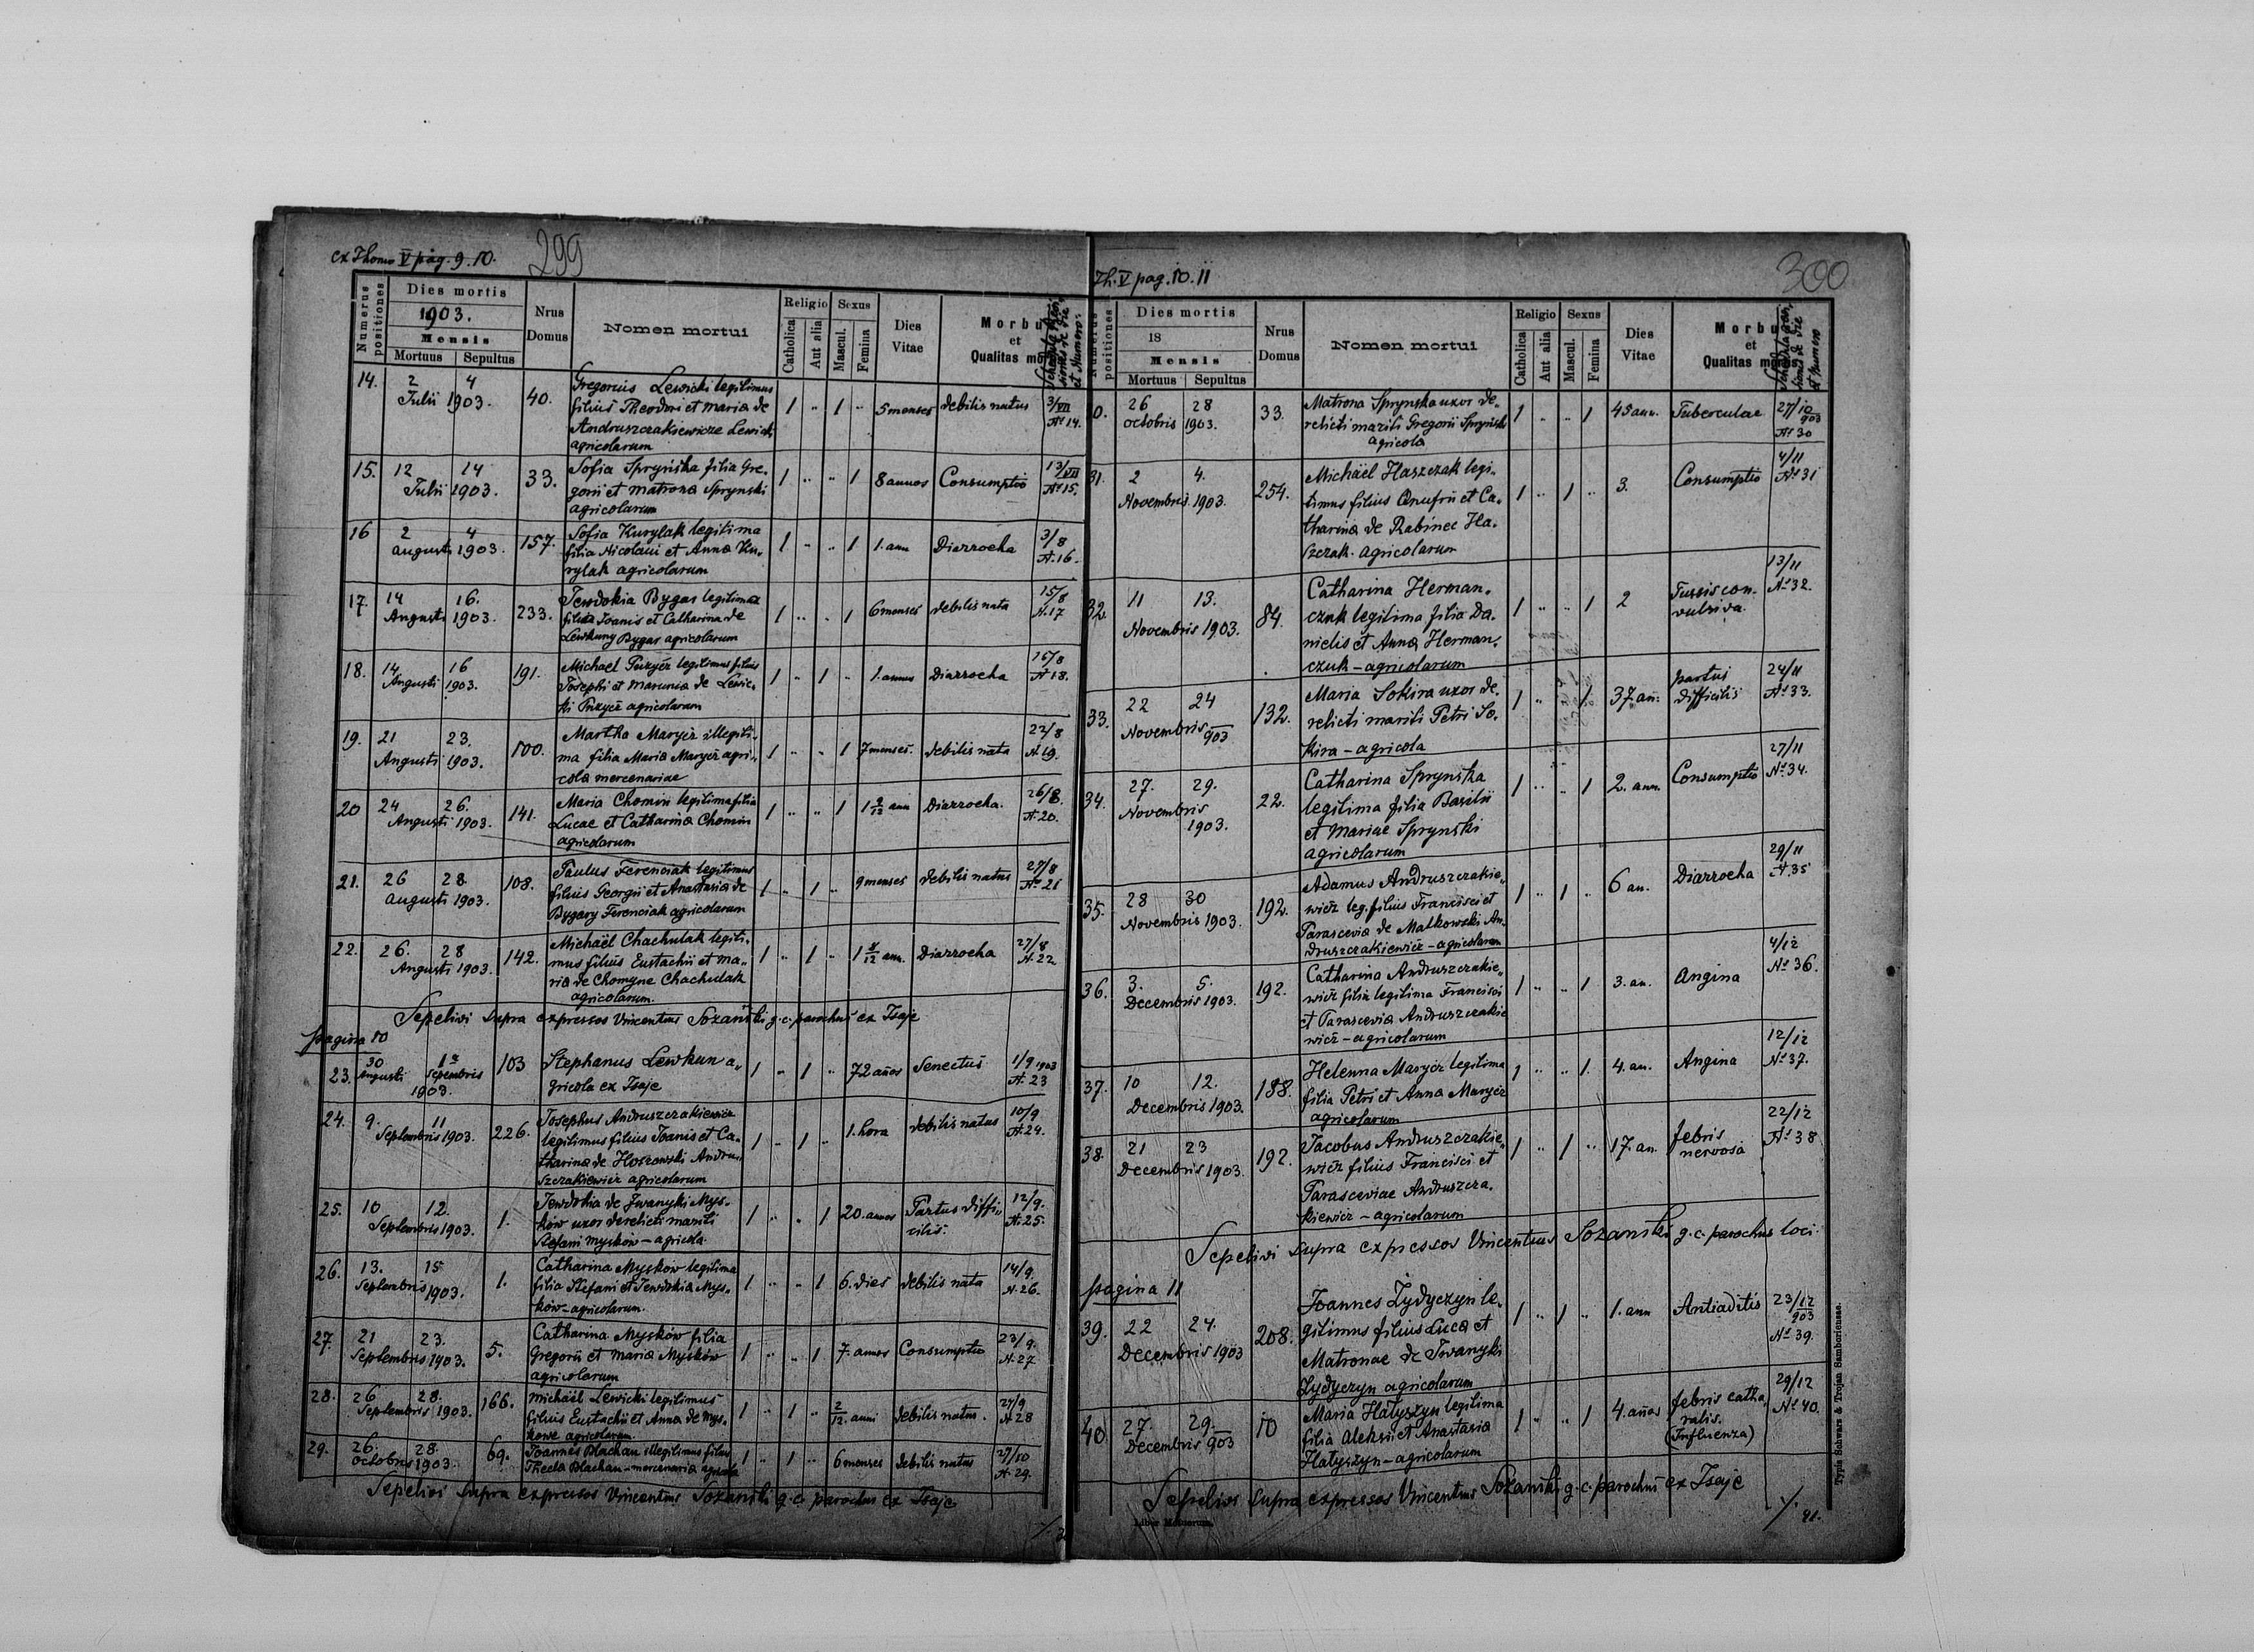 ex Thomo V pag. 9. 10.
299
Numerus positiones
Dies mortis
1903.
Mensis
Mortuus Sepultus
Nrus Domus
Nomen mortui
Religio
Catholica
Aut alia
Sexus
Mascul.
Femina
Dies Vitae
Morbus
et
Qualitas mortis
et Numero
14. 2 4 40. Gregorius Lewicki legitimus
Julii 1903. filius Theodori et Maria de 1 " 1 " 5 menses debilis natus 3/VII
Andruszczakiewicze Lewicki No 14.
agricolarum
15. 12 14 33. Sofia Spryńska filia Gre-
Julii 1903. gorii et Matrona Sprynski 1 " " 1 8 annos Consumptio 13/VII
agricolarum No 15.
16 2 4 157. Sofia Kurylak legitima
augusti 1903. filia Nicolaui et Anna Ku- 1 " " 1 1. ann Diarrocha 3/8
rylak agricolarum N. 16.
17. 14 16. 233. Jewdokia Bygar legitima
Augusti 1903. filia Joanis et Catharina de 1 " " 1 6 menses debilis nata 15/8
Lewkuny Bygar agricolarum N. 17
18. 14 16 191. Michael Puzycz legitimus filius
Augusti 1903. Josephi et Marunia de Lewic- 1 " 1 " 1. annus Diarrocha 15/8
ki Puzycz agricolarum N 18.
19. 21 23. 100. Martha Marycz illegiti-
Augusti 1903. ma filia Maria Marycz agri- 1 " " 1 7 menses. debilis nata 22/8
cola mercenariae N. 19.
20 24 26. 141. Maria Chomin legitima filia
Augusti 1903. Lucae et Catharina Chomin 1 " " 1 ann Diarrocha. 26/8.
agricolarum N. 20.
21. 26 28 108. Paulus Ferenciak legitimus
augusti 1903. filius Georgii et Anastasia de 1 " 1 " 9 menses debilis natus 27/8
Bygary Ferenciak agricolarum No 21
22. 26. 28 142. Michaël Chachulak legiti-
Augusti 1903. mus filius Eustachii et Ma- 1 " 1 " ann. Diarrocha 27/8
ria de Chomyne Chachulak N. 22
agricolarum.
Sepelivi supra expressos Vincentius Sozański g. c. parochus ex Isaje
pagina 10
23. 30 Augusti 1a Septembris 1903. 103 Stephanus Lewkun a- 1 " 1 " 72 años Senectus 1/9 1903
gricola ex Isaje N. 23
24. 9. 11 226. Josephus Andruszczakiewicz
Septembris 1903. legitimus filius Joanis et Ca- 1 " 1 " 1. hora debilis natus 10/9
tharina de Hoszowski Andru- N. 24.
szczakiewicz agricolarum
25. 10 12. 1. Jewdokia de Iwanyki Mys-
Septembris 1903. ków uxor derelicti mariti 1 " " 1 20. annos Partus diffi- 12/9.
Stefani Mysków - agricola. cilis. N. 25.
26. 13. 15 1. Catharina Mysków legitima
Septembris 1903. filia Stefani et Jewdokia Mys- 1 " " 1 6. dies debilis nata 14/9.
ków - agricolarum. N. 26.
27. 21 23. 5. Catharina Mysków filia
Septembris 1903. Gregorii et Maria Mysków 1 " " 1 7. annos Consumptio 23/9.
agricolarum N. 27
28. 26 28. 166. Michäel Lewicki legitimus
Septembris 1903. filius Eustachii et Anna de Mys- 1 " 1 " 2/12. anni debilis natus. 27/9
kowe agricolarum. N. 28
29. 26. 28. 69. Joannes Blachau illegitimus filius
octobris 1903. Thecla Blachau - mercenaria agricola 1 " 1 " 6 menses debilis natus 27/10
N. 29.
Sepelivi supra expressos Vincentius Sozański g. c. parochus ex Isaje
Th. V pag. 10. 11
300
Numerus positiones
Dies mortis
18
Mensis
Mortuus Sepultus
Nrus Domus
Nomen mortui
Religio
Catholica
Aut alia
Sexus
Mascul.
Femina
Dies Vitae
Morbus
et
Qualitas mortis
et Numero
30. 26 28 33. Matrona Sprynska uxor de-
octobris 1903. relicti mariti Gregorii Spryński 1 " " 1 45 ann. Tuberculae 27/10 903
agricola No 30
31. 2 4. 254. Michäel Haszczak legi-
Novembris 1903. timus filius Onufrii et Ca- 1 " 1 " 3. Consumptio 4/11
tharina de Rabinec Ha- No 31
szczak. agricolarum
32. 11 13. 84. Catharina Herman-
Novembris 1903. czuk legitima filia Da- 1 " " 1 2 Tussis con- 13/11
nielis et Anna Herman- vulsiva. No 32.
czuk - agricolarum
33. 22 24 132. Maria Sokira uxor de-
Novembris 903 relicti mariti Petri So- 1 " " 1 37. an. partus difficilis 24/11
kira - agricola No 33.
34. 27. 29. 22. Catharina Sprynska
Novembris 1903. legitima filia Basilii 1 " " 1 2. ann. Consumptio 27/11
et Mariae Sprynski No 34.
agricolarum
35. 28 30 192. Adamus Andruszczakie-
Novembris 1903. wicz leg. filius Francisci et 1 " 1 " 6 an. Diarrocha 29/11
Parascevia de Matkowski An- N. 35
druszczakiewicz - agricolarum
36. 3. 5. 192. Catharina Andruszczakie-
Decembris 1903. wicz filia legitima Francisci 1 " " 1 3. an. Angina 4/12
et Parascevia Andruszczakie No 36.
wicz - agricolarum
37. 10 12. 188. Helenna Marycz legitima
Decembris 1903. filia Petri et Anna Marycz 1 " " 1. 4. an. Angina 12/12
agricolarum No 37.
38. 21 23 192. Jacobus Andruszczakie-
Decembris 1903. wicz filius Francisci et 1 " 1 " 17. an. febris nervosa 22/12
Parasceviae Andruszcza- No 38
kiewicz - agricolarum
Sepelivi supra expressos Vincentius Sozański g. c. parochus loci.
pagina 11
39. 22 24. 208. Joannes Żydyczyn le-
Decembris 1903 gitimus filius Luca et 1 " 1 " 1. ann Antiaditis 23/12 903
Matronae de Iwanyki No 39.
Zydyczyn agricolarum
40. 27. 29. 10 Maria Hatyszyn legitima
Decembris 903 filia Aleksii et Anastasia 1 " " 1 4. años febris catha- 29/12
Hatyszyn - agricolarum ralis. No 40.
(Influenza)
Sepelivi supra expressos Vincentius Sozański g. c. parochus ex Isaje
Liber Mortuorum.
Typis Schwarz & Trojan Samboriensae.